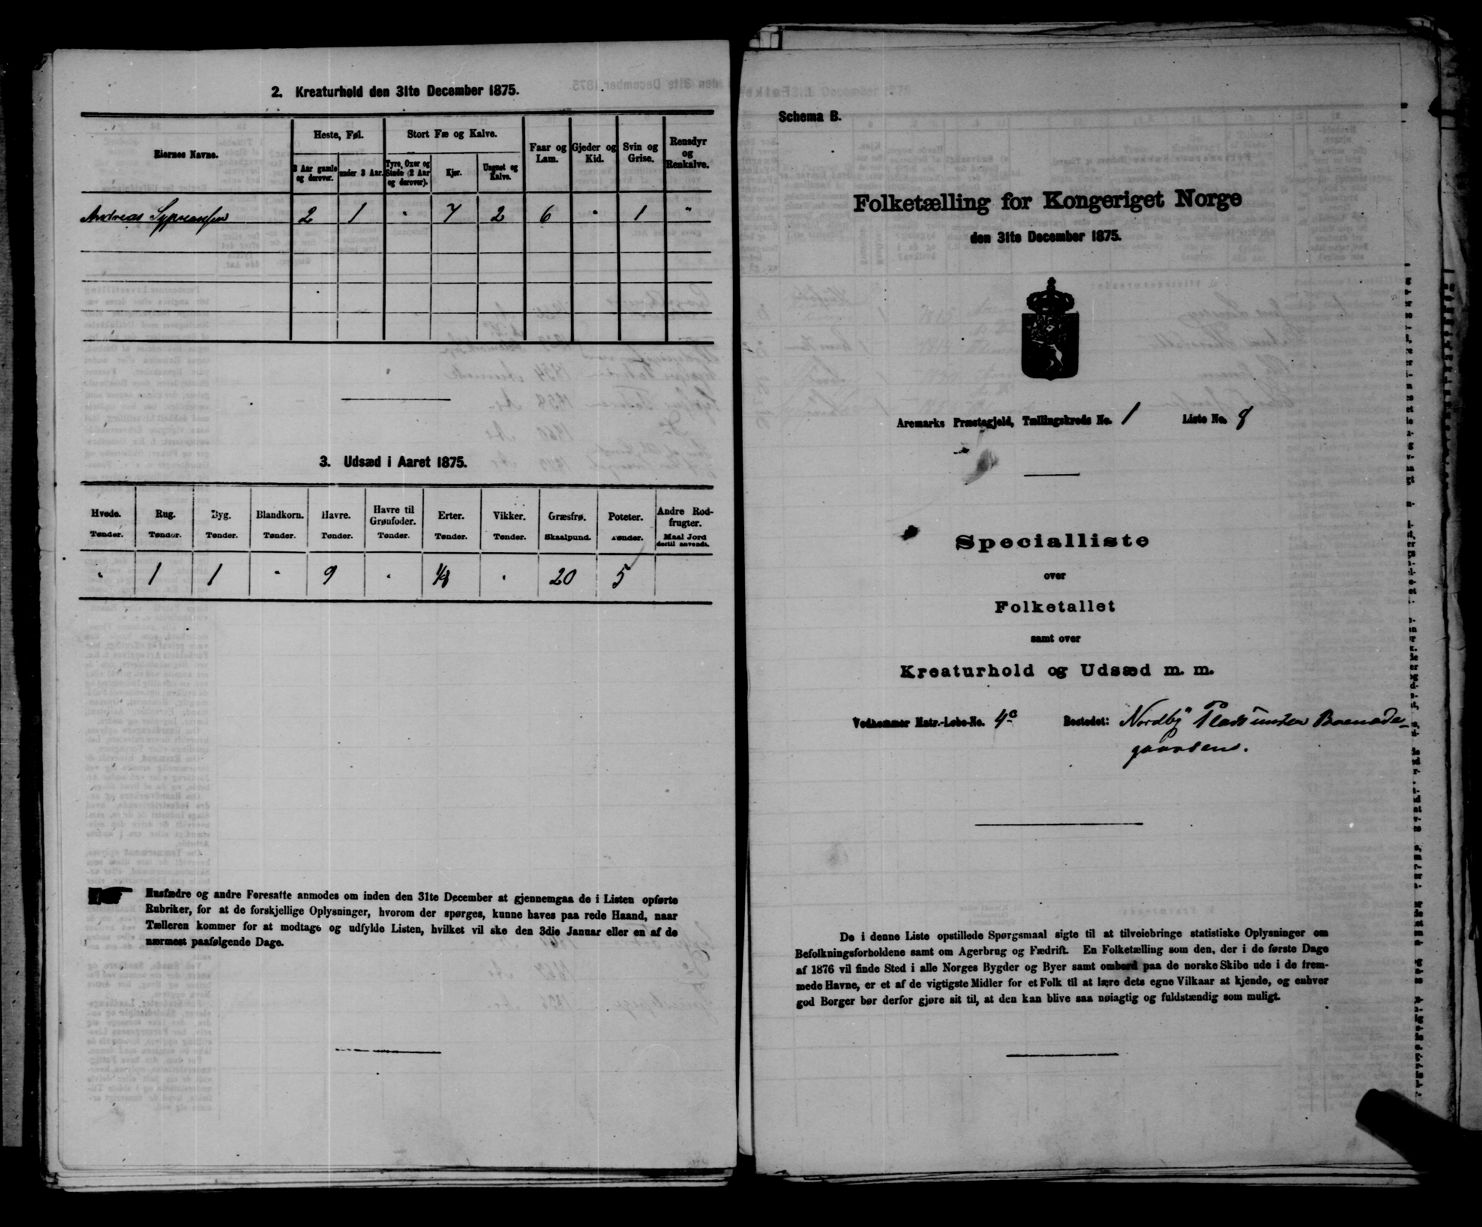 2. Kreaturhold den 31te December 1875.
Eiernes Navne.
Heste, Føl.
Stort Fæ og Kalve.
Faar og Lam.
Gjeder og Kid.
Svin og Grise.
Rensdyr og Renkalve.
3 Aar gamle og derover.
under 3 Aar.
Tyre, Oxer og Stude (2 Aar og derover).
Kjør.
Ungnøt og Kalve.
Andreas 2 1 " 7 2 6 " 1 "
3. Udsæd i Aaret 1875.
Hvede. Rug. Byg. Blandkorn. Havre. Havre til Grønfoder. Erter. Vikker. Græsfrø. Poteter. Andre Rodfrugter.
Tønder. Tønder. Tønder. Tønder. Tønder. Tønder. Tønder. Tønder. Skaalpund. Tønder. Maal Jord dertil anvendt.
" 1 1 " 9 " 1/8 " 20 5
Husfædre og andre Foresatte anmodes om inden den 31te December at gjennemgaa de i Listen opførte
Rubriker, for at de forskjellige Oplysninger, hvorom der spørges, kunne haves paa rede Haand, naar
Tælleren kommer for at modtage og udfylde Listen, hvilket vil ske den 3die Januar eller en af de
nærmest paafølgende Dage.
Schema B.
Folketælling for Kongeriget Norge
den 31te December 1875.
Aremarks Præstegjeld, Tællingskreds No. 1 Liste No. 8
Specialliste
over
Folketallet
samt over
Kreaturhold og Udsæd m. m.
Vedkommer Matr.-Løbe-No. 4c Bostedet: Nordby Plads under
De i denne Liste opstillede Spørgsmaal sigte til at tilveiebringe statistiske Oplysninger om
Befolkningsforholdene samt om Agerbrug og Fædrift. En Folketælling som den, der i de første Dage
af 1876 vil finde Sted i alle Norges Bygder og Byer samt ombord paa de norske Skibe ude i de frem-
mede Havne, er et af de vigtigste Midler for et Folk til at lære dets egne Vilkaar at kjende, og enhver
god Borger bør derfor gjøre sit til, at den kan blive saa nøiagtig og fuldstændig som muligt.